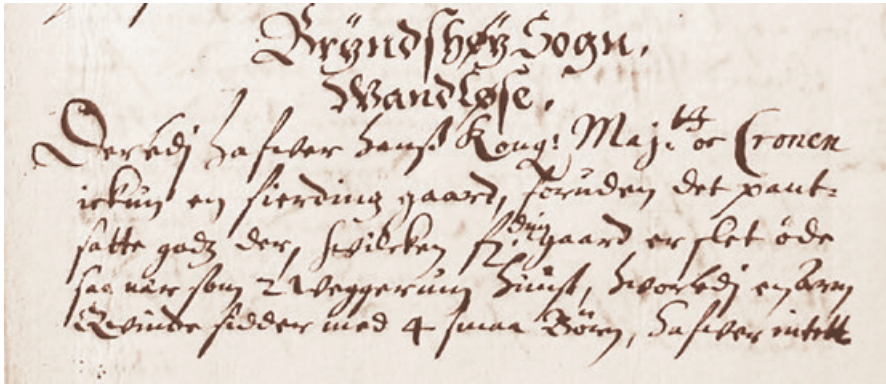 Brÿndshøÿ Sogn.
Wandløse.
Derudj hafwer Hanß Kong: Maj:tt oc Cronen
ickun en fierding gaard, foruden det pant-
satte godz der, hwilcken fi:dinggaard er slet öde
saa nær som 2 Weggerum huuß, hworudj en arm
Qvinde sidder med 4 smaa Börn, hafwer intett